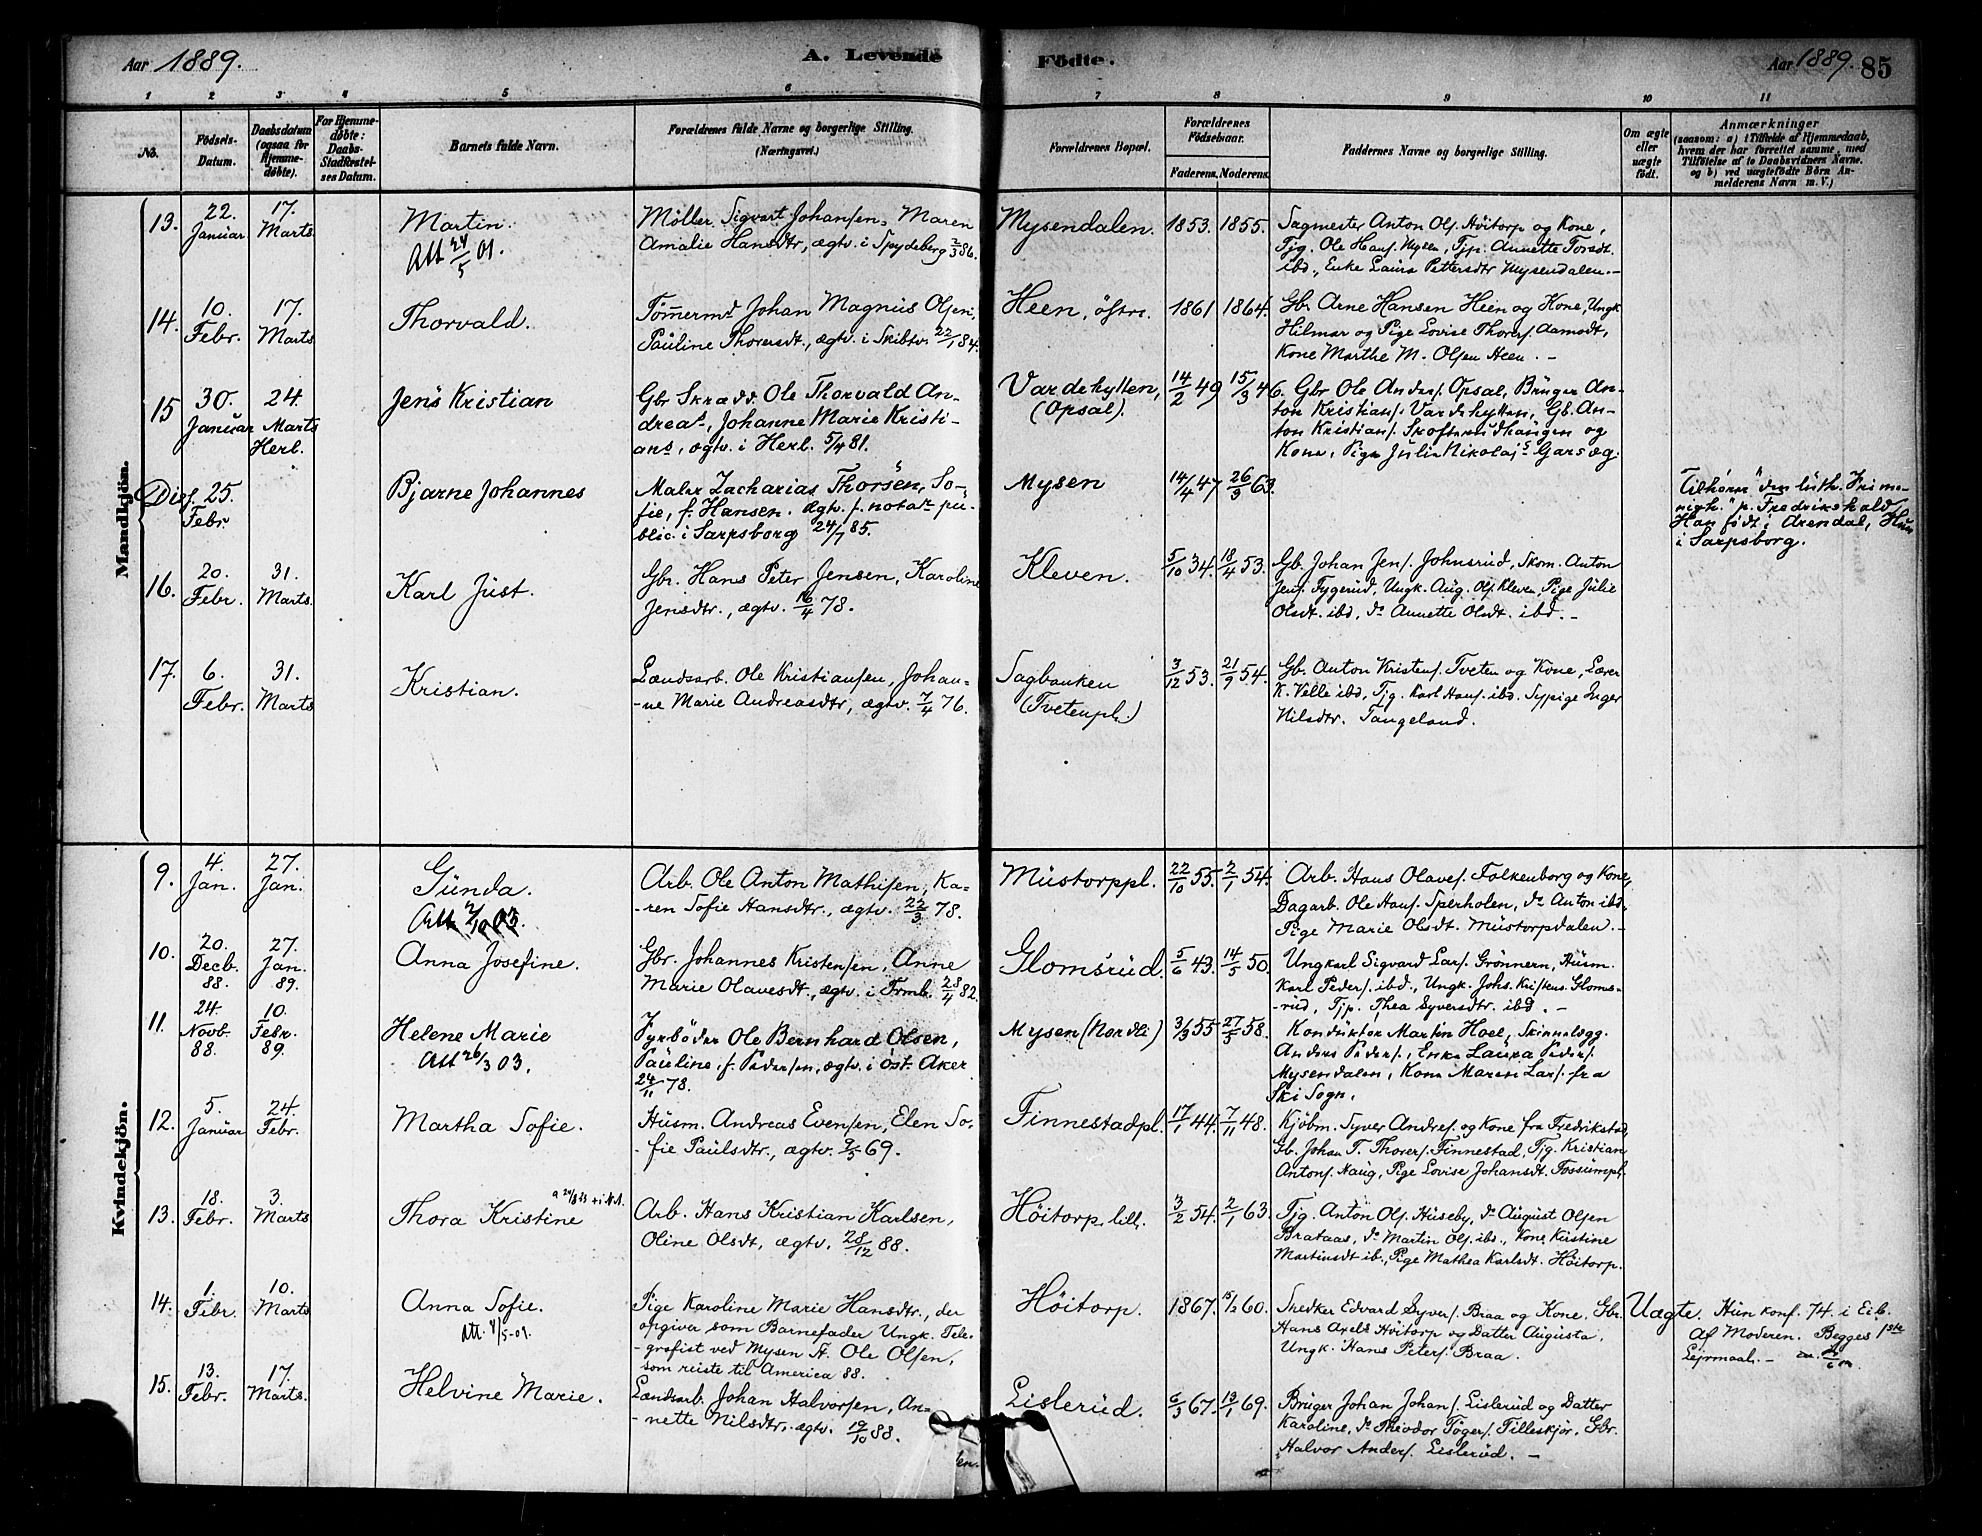 Aar 1889.
A. Levende Fødte.
Aar 1889. 85
1 2 3 4 5 6 7 8 9 10 11
No.
Fødsels-
Datum.
Daabsdatum
(ogsaa for
Hjemme-
døbte).
For Hjemme-
døbte:
Daabs-
Stadfæstel-
ses Datum.
Barnets fulde Navn.
Forældrenes fulde Navne og borgerlige Stilling.
(Næringsvei.)
Forældrenes Bopæl.
Forældrenes
Fødselsaar.
Faderens. Moderens.
Faddernes Navne og borgerlige Stilling.
Om ægte
eller
uægte
født.
Anmærkninger
(saasom: a) i Tilfælde af Hjemmedaab,
hvem der har forrettet samme, med
Tilføielse af to Daabsvidners Navne.
og b) ved uægtefødte Børn An-
melderens Navn m. V.)
Mandkjön.
13.
22.
Januar
17.
Marts.
Martin.
Att 24/5 01.
Møller Sigvart Johansen, Maren
Amalie Hansdtr, ægtv. i Spydeberg 2/3 86.
Mysendalen.
1853. 1855.
Sagmester Anton Ols. Höitorp og Kone,
Tjg. Ole Hans. Mysen, Tjp. Annette Torsdt.
ibd., Enke Laura Pettersdtr Mysendalen.-
14.
10.
Febr.
17.
Marts
Thorvald.
Tömermd Johan Magnus Olsen,
Pauline Thorersdt., ægtv. i Skibtv. 22/1 84.
Heen, östre.
1861 1864.
Gbr. Arne Hansen Heen og Kone, Ungk.
Hilmar og Pige Lovise Thorers. Aamodt,
Kone Marthe M. Olsen Heen. -
15
30.
Januar
24.
Marts
Herl.
Jens Kristian
Gbr Skrædd. Ole Thorvald An-
dreas., Johanne Marie Kristi-
ans, ægtv. i Herl. 5/4 81.
Vardehytten,
(Opsal).
14/2 49 15/3 46.
Gbr Ole Anders. Opsal, Brüger An-
ton Kristians. Vardehytten, Gb. An-
ton Kristians. Skofterudhaugen og
Kone, Pige Julie Nikolajs Garsæg.
Diss.
25.
Febr
Bjarne Johannes
Maler Zacharias Thorsen, So-
fie, f. Hansen. ægtv. f. notar pu-
blic. i Sarpsborg 24/7 85.
Mysen
14/4 47 26/9 63.
Tilhører "den luth. Frime-
nigh." p. Fredrikshald,
Han födt i Arendal, Hun
i Sarpsborg.
16.
20.
Febr.
31.
Marts.
Karl Just.
Gbr. Hans Peter Jensen, Karoline
Jensdtr., ægtv. 16/4 78.
Kleven.
5/10 34. 18/4 53.
Gb. Johan Jens. Johnsrud, Skom. Anton
Jens. Tygerud, Ungk. Aug. Ols. Kleven, Pige Julie
Olsdt. ibd, do Annette Olsdt. ibd. -
17.
6.
Febr.
31.
Marts
Kristian.
Landsarb. Ole Kristiansen, Johan-
-ne Marie Andreasdtr, ægtv. 7/4 76.
Sagbanken
(Tvetenpl.)
3/12 53. 21/9 54.
Gb. Anton Kristens. Tveten og Kone, Lærer
K. Velle ibd. Tjg. Karl Hans. ibd. Sypige Inger
Nilsdtr. Tangeland.
Kvindekjön.
9.
4.
Jan.
27.
Jan.
Gunda.
Att 2/10 03.
Arb. Ole Anton Mathisen, Ka-
-ren Sofie Hansdtr., ægtv. 22/3 78.
Mustorppl.
22/10 55. 2/1 54.
Arb. Hans Olaves. Falkenborg og Kone,
Dagarb. Ole Hans. Sperholen, do Anton ibd.
Pige Marie Olsdt. Mustorpdalen.-
10.
20.
Decb.
88.
27.
Jan.
89.
Anna Josefine.
Gbr. Johannes Kristensen, Anne
Marie Olavesdt., ægtv. i Trmb. 28/4 82.
Glomsrud.
5/6 43. 14/5 50.
Ungkarl Sigvard Lars. Grönnern, Husm.
Karl Peders. ibd., Ungk. Johs. Kristens. Gloms-
-rud, Tjp. Thea Syversdtr. ibd. -
11.
24.
Novb.
88.
10.
Febr.
89.
Helene Marie
Att 26/3 03.
Fyrböder Ole Bernhard Olsen,
Pauline, f. Pedersen, ægtv. i Öst. Aker
24/11 78.
Mysen (Nordli)
3/9 55 27/5 58.
Konduktör Martin Hoel, Skinnelægg.
Anders Peders., Enke Laura Peders.
Mysendalen, Kone Maren Lars. fra
Ski Sogn.
12.
5.
Januar
24.
Febr.
Martha Sofie.
Husm. Andreas Evensen, Elen So-
-fie Paulsdtr., ægtv. 2/5 69.
Finnestadpl.
17/1 44. 7/11 48.
Kjöbm. Syver Andres. og Kone fra Fredrikstad,
Gb. Johan T. Thorers. Finnestad, Tjg. Kristian
Antons. Naug, Pige Lovise Johansdt. Fossumpl.
13.
18.
Febr.
3.
Marts
Thora Kristine
Arb. Hans Kristian Karlsen,
Oline Olsdt, ægtv. 28/12 88.
Höitorp lill.
3/2 54. 2/1 63.
Tjg. Anton Ols. Huseby, do August Olsen
Brataas, do Martin Ols. ibd., Kone Kristine
Martinsdt ib., Pige Mathea Karlsdt. Höitorp.
14.
1.
Febr.
10.
Marts
Anna Sofie.
Att. 4/5-09.
Pige Karoline Marie Hansdtr., der
opgiver som Barnefader Ungk. Tele-
-grafist ved Mysen St. Ole Olsen,
som reiste til America 88.
Höitorp.
1867. 15/12 60.
Snedker Edvard Syvers. Braa og Kone, Gbr.
Hans Axels Höitorp og Datter Augusta,
Ungk. Hans Peters. Braa.
Uægte.
Hun konf. 74. i Eib.
Af Moderen. Begges 1ste
Leirmaal. -
15.
13.
Febr.
17.
Marts.
Helvine Marie.
Landsarb. Johan Halvorsen, An-
-nette Nilsdtr. ægtv. 19/10 88.
Lislerud.
6/3 67. 13/1 69.
Bruger Johan Johans. Lislerud og Datter
Karoline, do Theodor Tögers. Tilleskjör. Gbr.
Halvor Anders. Lislerud. -